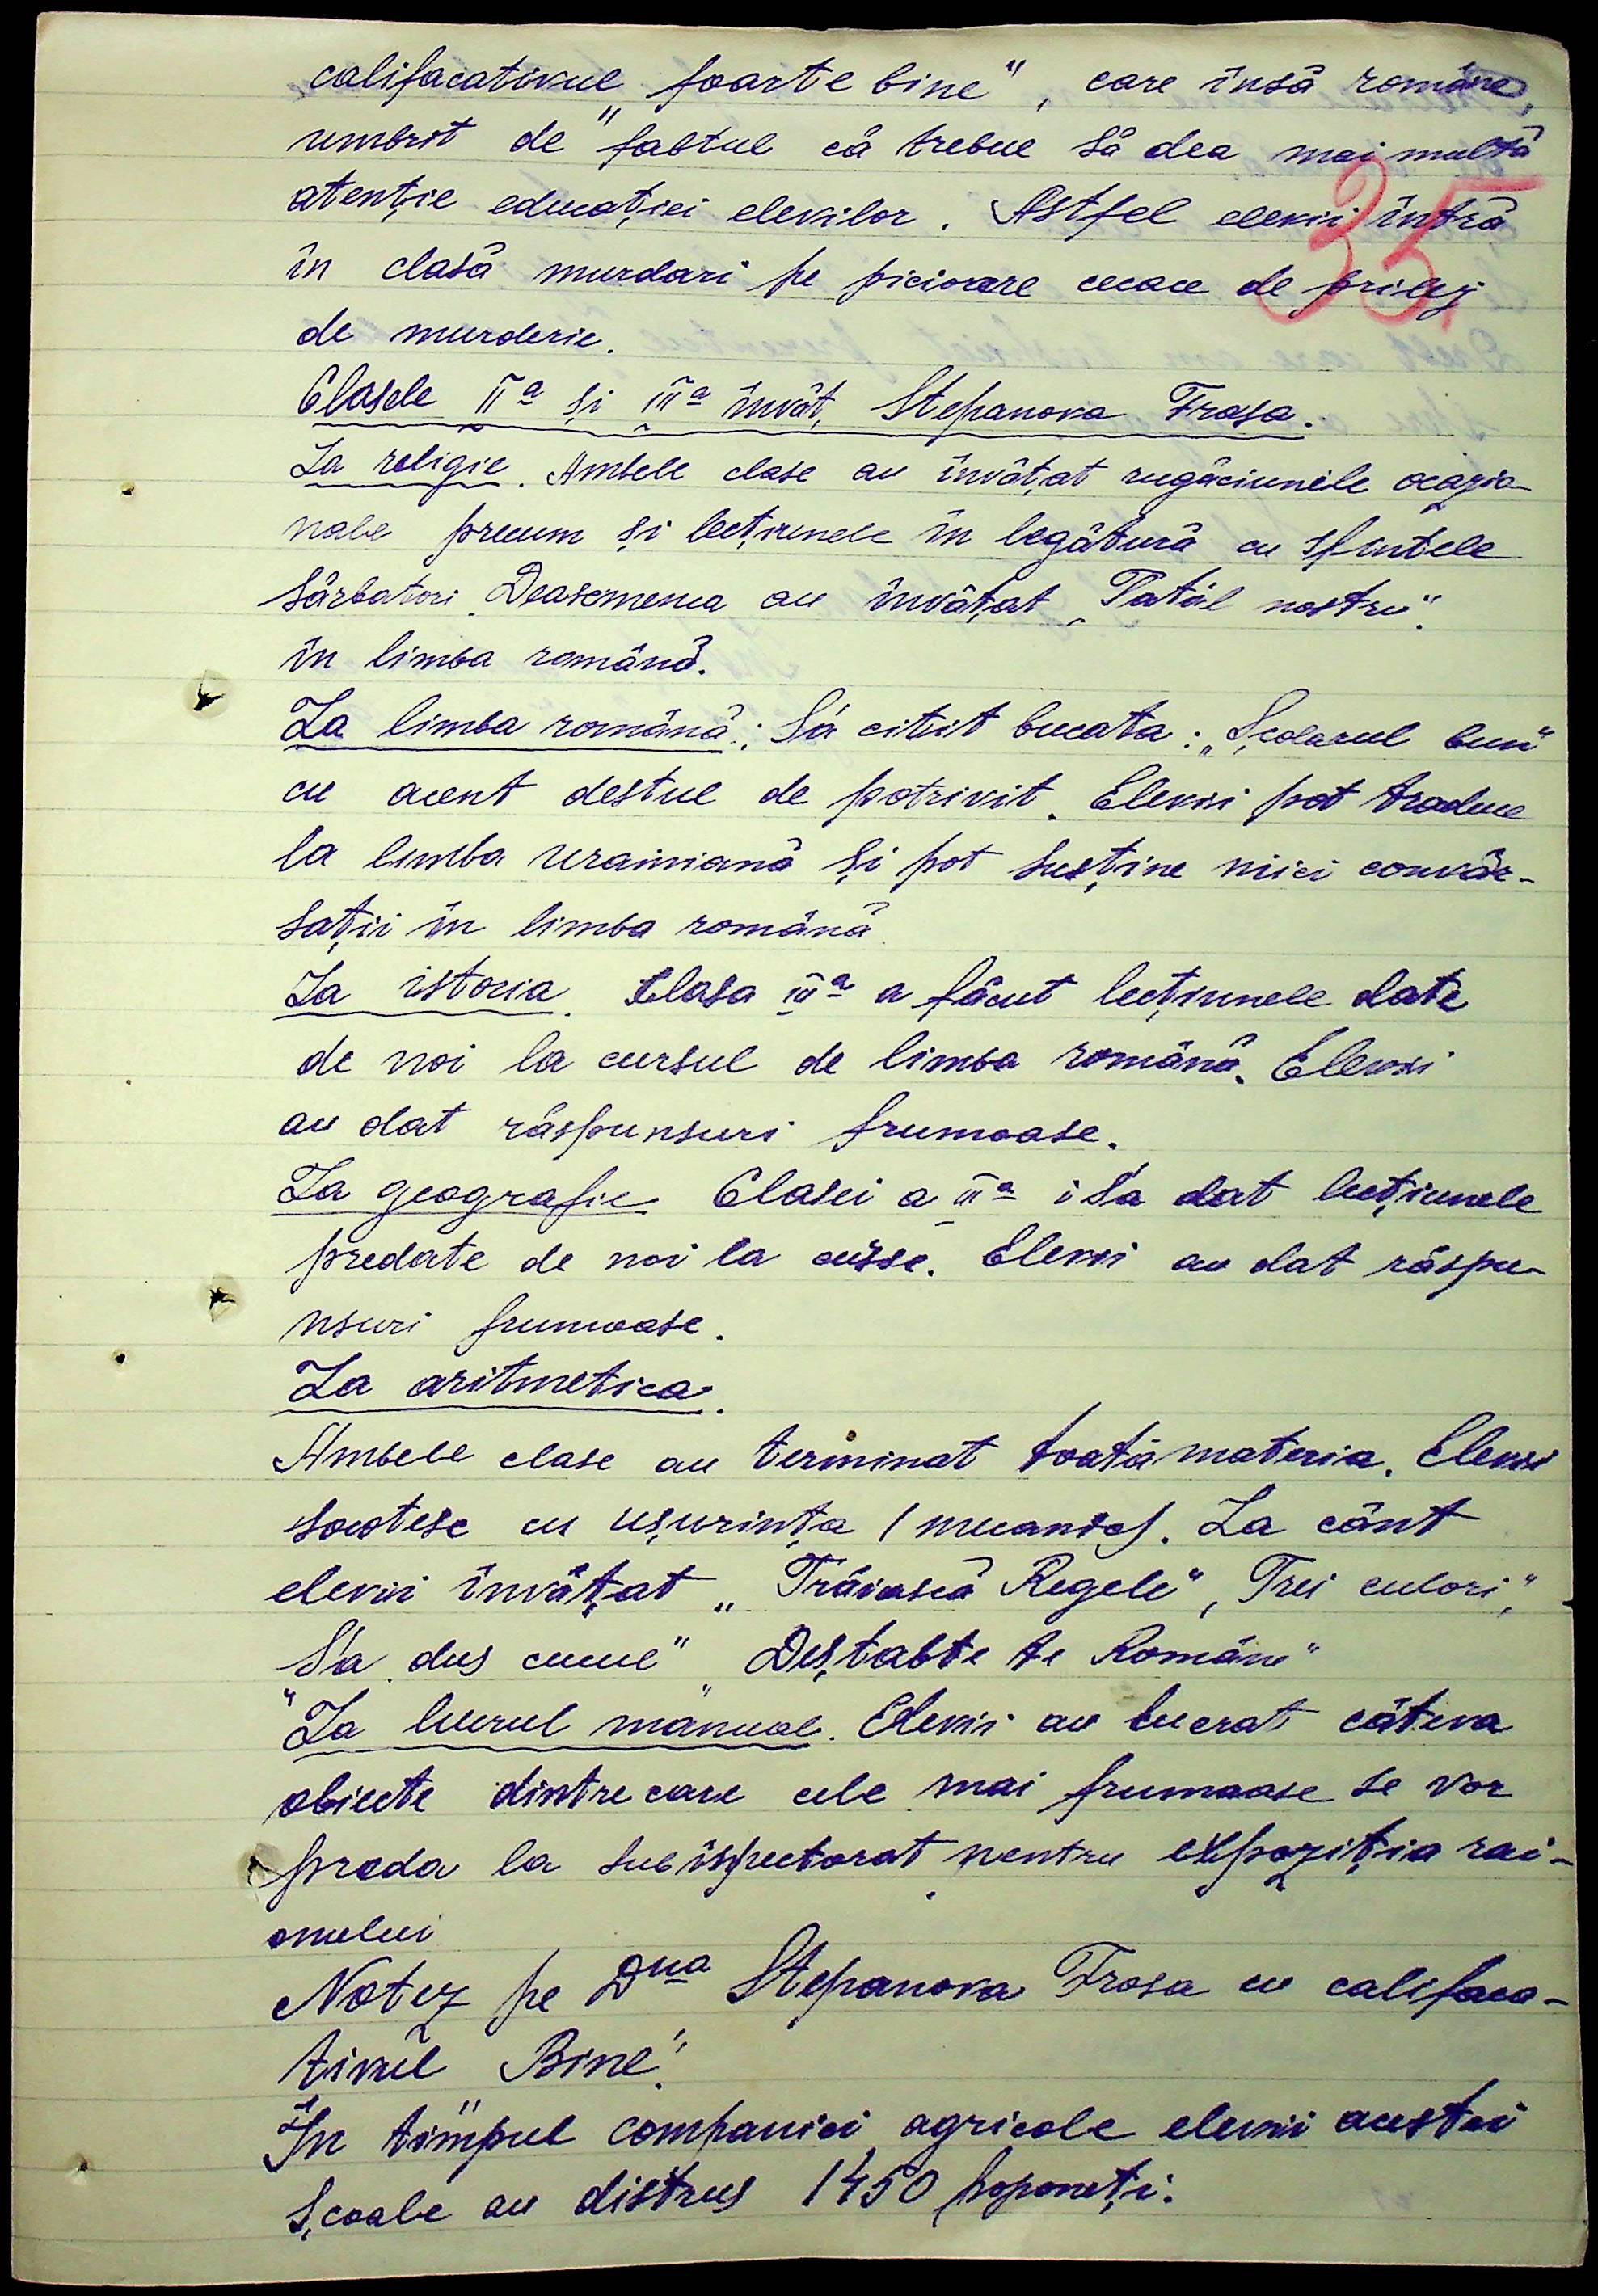 califacativul „foarte bine", care însă rămâne
umbrit de faptul că trebue să dea mai multă
atenție educației elevilor. Astfel elevii intră
în clasă murdari pe picioare ceace de prilej
de murderie.
35
Clasele II a și III a învăț, Stepanova Frosa.
La religie. Ambele clase au învățat rugăciunele ocazio-
nale precum și lecțiunele în legătură cu sfintele
sărbatori. Deasemenea au învățat „Tatăl nostru".
în limba română.
La limba română: S'a citit bucata: „Școlarul bun"
cu acent destul de potrivit. Elevii pot traduce
la limba ucrainiană și pot susține mici convăr-
sații în limba română
La istoria. Clasa III a a făcut lecțiunele date
de noi la cursul de limba română. Elevii
au dat răspunsuri frumoase.
La geografie. Clasei a III a i s'a dat lecțiunele
predate de noi la curse. Elevii au dat răspu-
nsuri frumoase.
La aritmetica.
Ambele clase au terminat toată materia. Elevii
socotesc cu ușurința (mecanic). La cânt
elevii învățat „Trăiască Regele", „Trei culori",
„S'a dus cucul" „Deștabte te Române"
La lucrul manual. Elevii au lucrat câteva
obiecte dintre care cele mai frumoase se vor
preda la subispectorat pentru expoziția rai-
onului
Notez pe Dna Stepanova Frosa cu califaca-
tivul „Bine".
În timpul companiei agricole elevii acestei
școale au distrus 1450 poponeți.